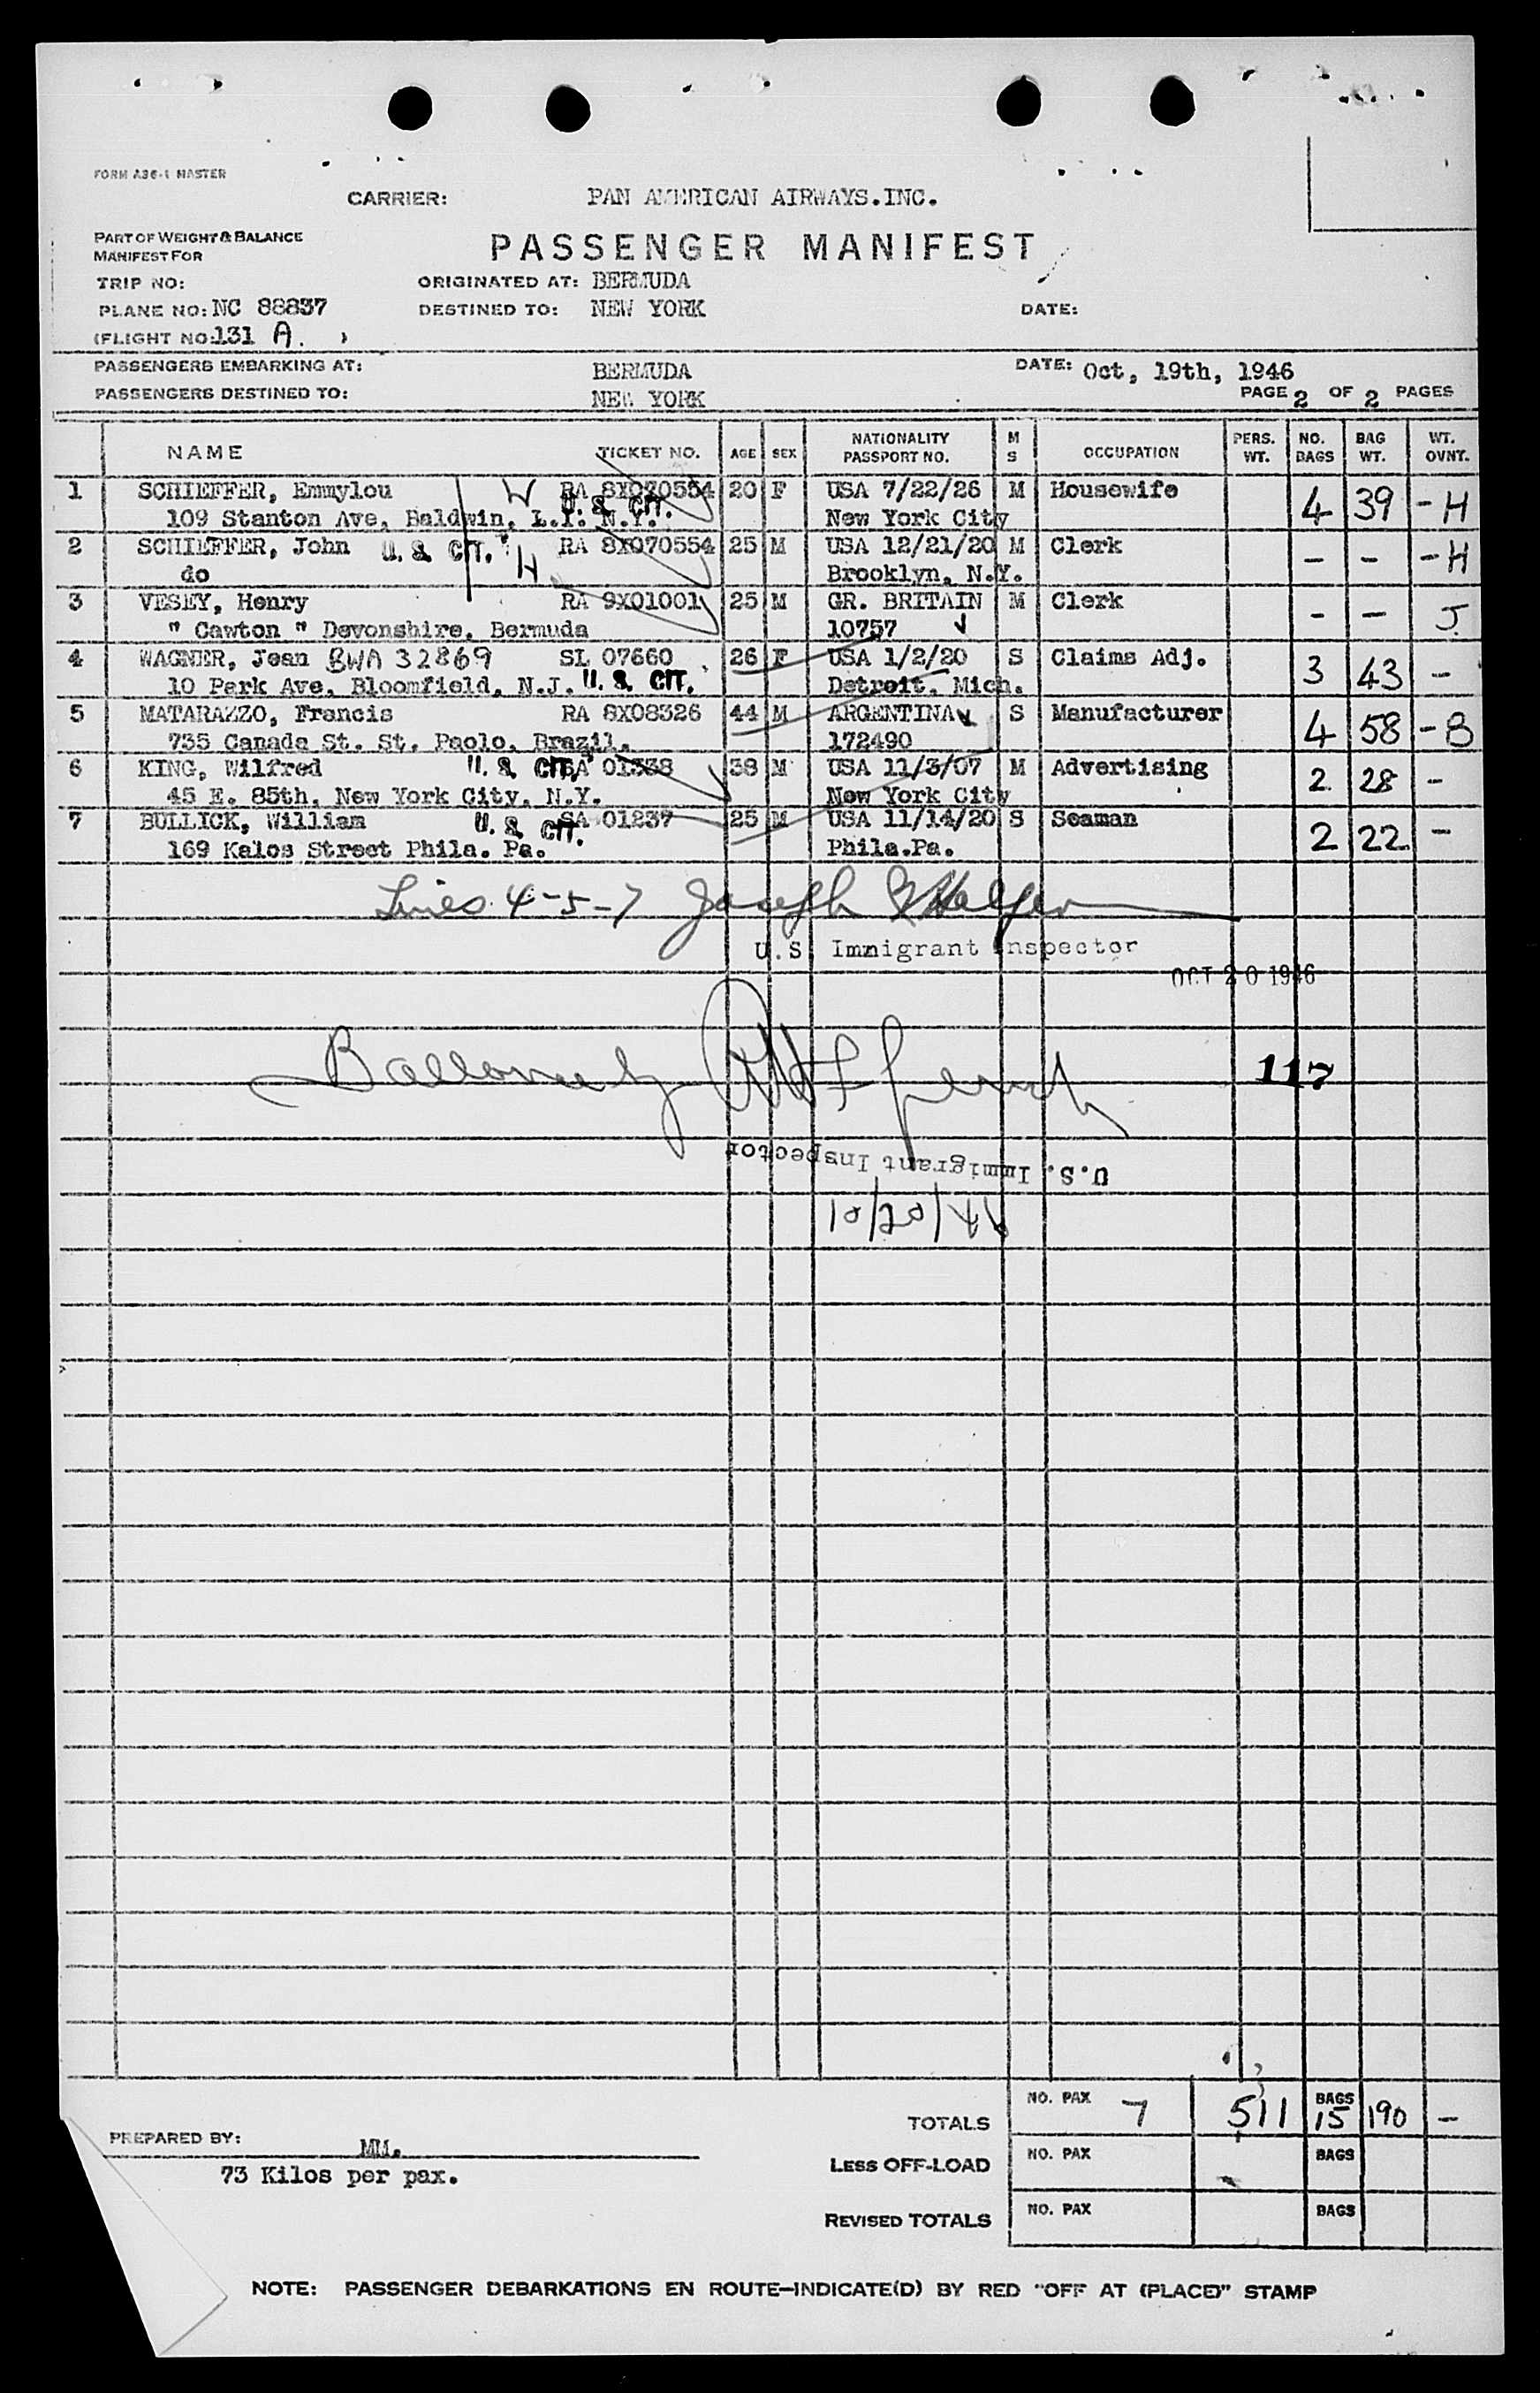 FORM A36-1 MASTER
CARRIER: PAN AMERICAN AIRWAYS.INC.
PART OF WEIGHT & BALANCE
MANIFEST FOR
PASSENGER MANIFEST
TRIP NO: ORIGINATED AT: BERMUDA
PLANE NO: NC 88837 DESTINED TO: NEW YORK DATE:
(FLIGHT NO: 131 A. )
PASSENGERS EMBARKING AT: BERMUDA DATE: Oct, 19th, 1946
PASSENGERS DESTINED TO: NEW YORK PAGE 2 OF 2 PAGES
NAME TICKET NO. AGE SEX NATIONALITY PASSPORT NO. M S OCCUPATION PERS. WT. NO. BAGS BAG WT. WT. OVNT.
1 SCHIEFFER, Emmylou RA 8X070554 20 F USA 7/22/26 M Housewife 4 39 - H
109 Stanton Ave, Baldwin, L.I. N.Y. U. S. CIT. New York City
2 SCHIEFFER, John U. S. CIT. H RA 8X070554 25 M USA 12/21/20 M Clerk - - - H
do Brooklyn, N.Y.
3 VESEY, Henry RA 9X01001 25 M GR. BRITAIN M Clerk - - J
" Cawton " Devonshire, Bermuda 10757
4 WAGNER, Jean BWA 32869 SL 07660 26 F USA 1/2/20 S Claims Adj. 3 43 -
10 Park Ave, Bloomfield, N.J. U. S. CIT. Detroit, Mich.
5 MATARAZZO, Francis RA 8X08326 44 M ARGENTINA S Manufacturer 4 58 - B
735 Canada St. St. Paolo, Brazil. 172490
6 KING, Wilfred U. S. CIT. SA 01338 38 M USA 11/3/07 M Advertising 2 28 -
45 E. 85th, New York City, N.Y. New York City
7 BULLICK, William U. S. CIT. SA 01237 25 M USA 11/14/20 S Seaman 2 22 -
169 Kalos Street Phila. Pa. Phila.Pa.
Lines 4-5-7 Joseph
U.S. Immigrant Inspector
OCT 20 1946
117
U.S. Immigrant Inspector
TOTALS NO. PAX 7 511 BAGS 15 190 -
PREPARED BY: MM.
LESS OFF-LOAD NO. PAX BAGS
73 Kilos per pax.
REVISED TOTALS NO. PAX BAGS
NOTE: PASSENGER DEBARKATIONS EN ROUTE—INDICATE(D) BY RED "OFF AT (PLACE)" STAMP